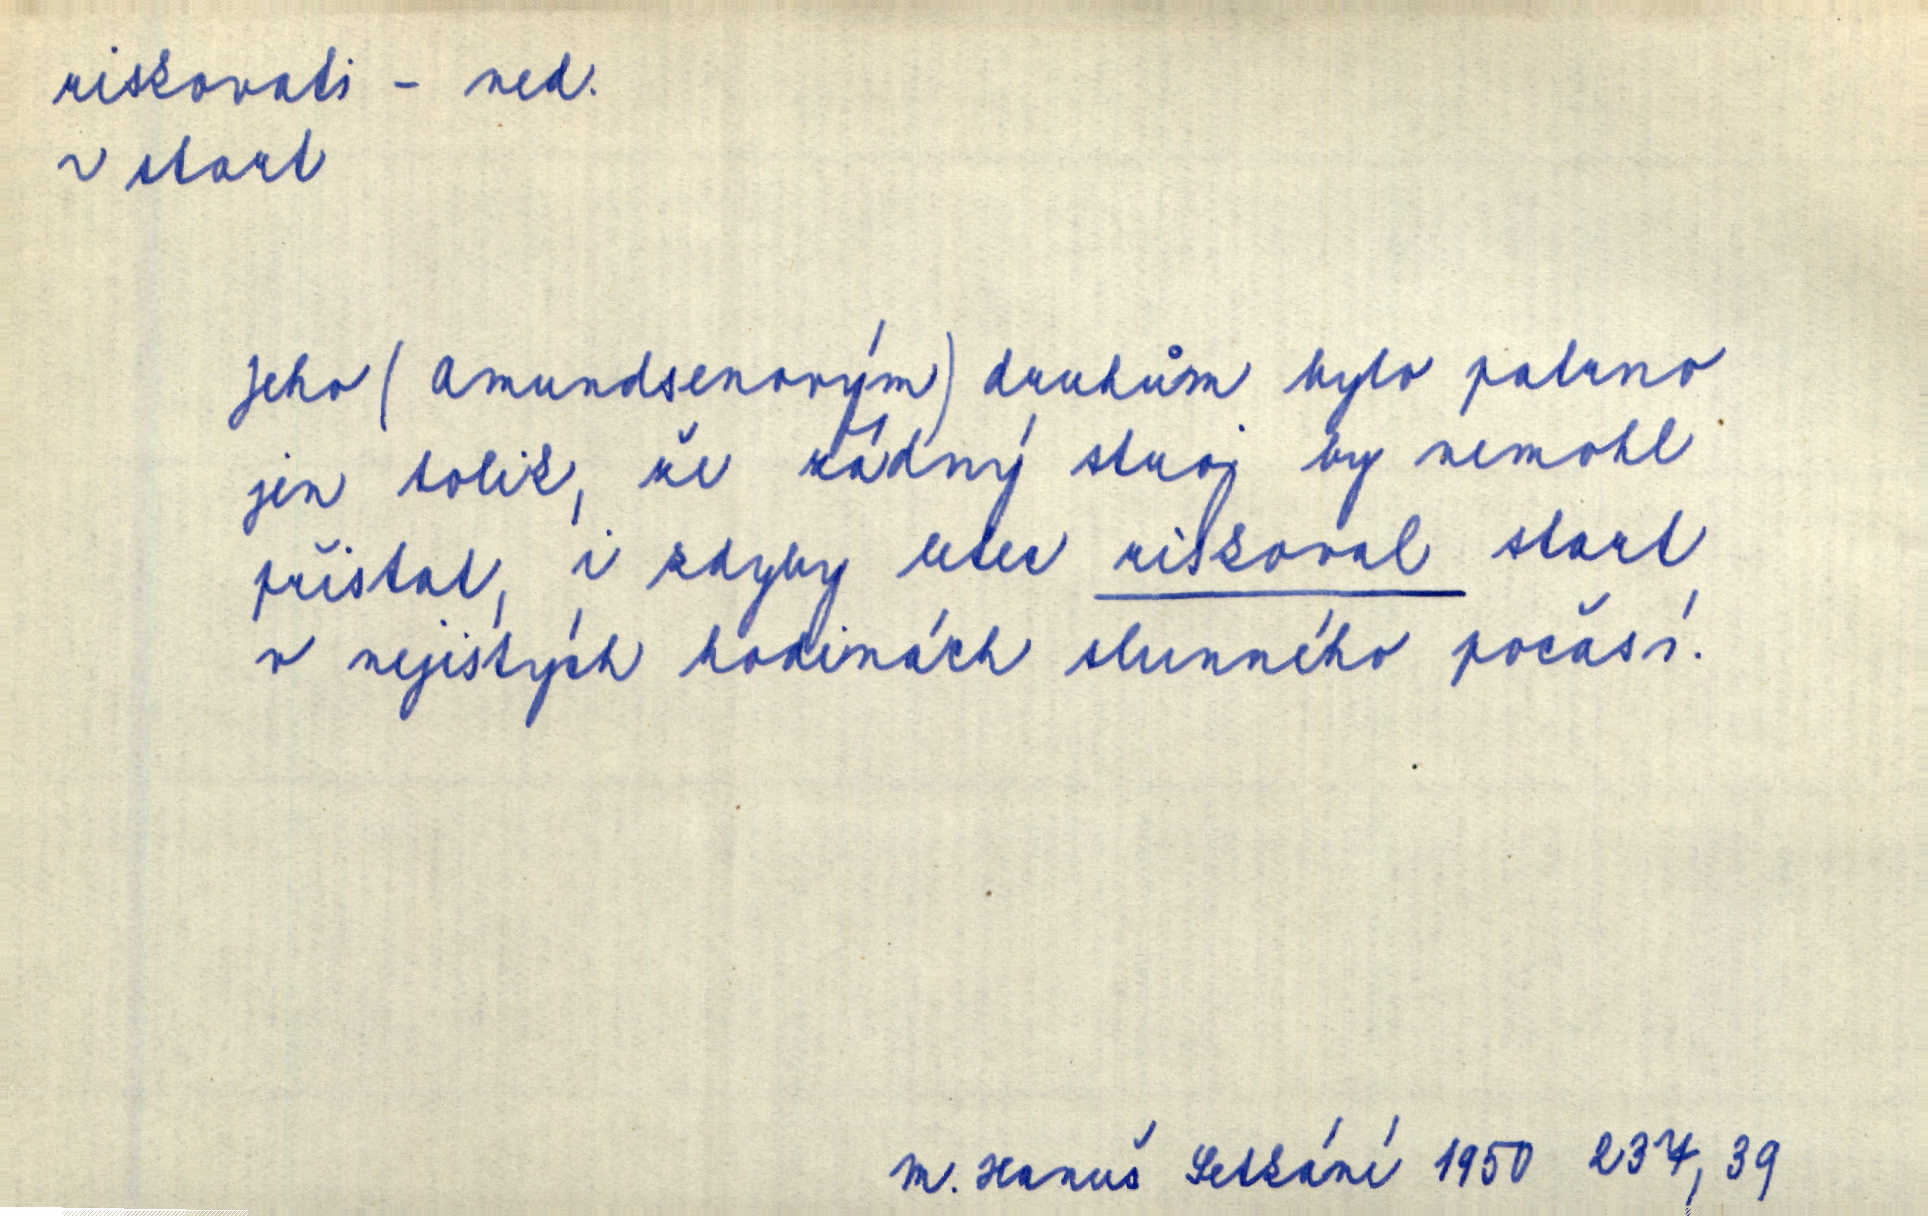 riskovati - ned.
~ start
Jeho (Amundsenovým) druhům bylo patrno
jen tolik, že žádný stroj by nemohl
přistat, i kdyby letec riskoval start
v nejistých hodinách slunného počasí.
M. Hanuš Setkání 1950 237, 39